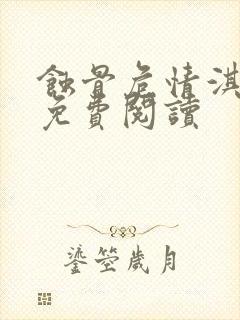 蝕骨危情淇
免費閱讀
鎏箜歲月